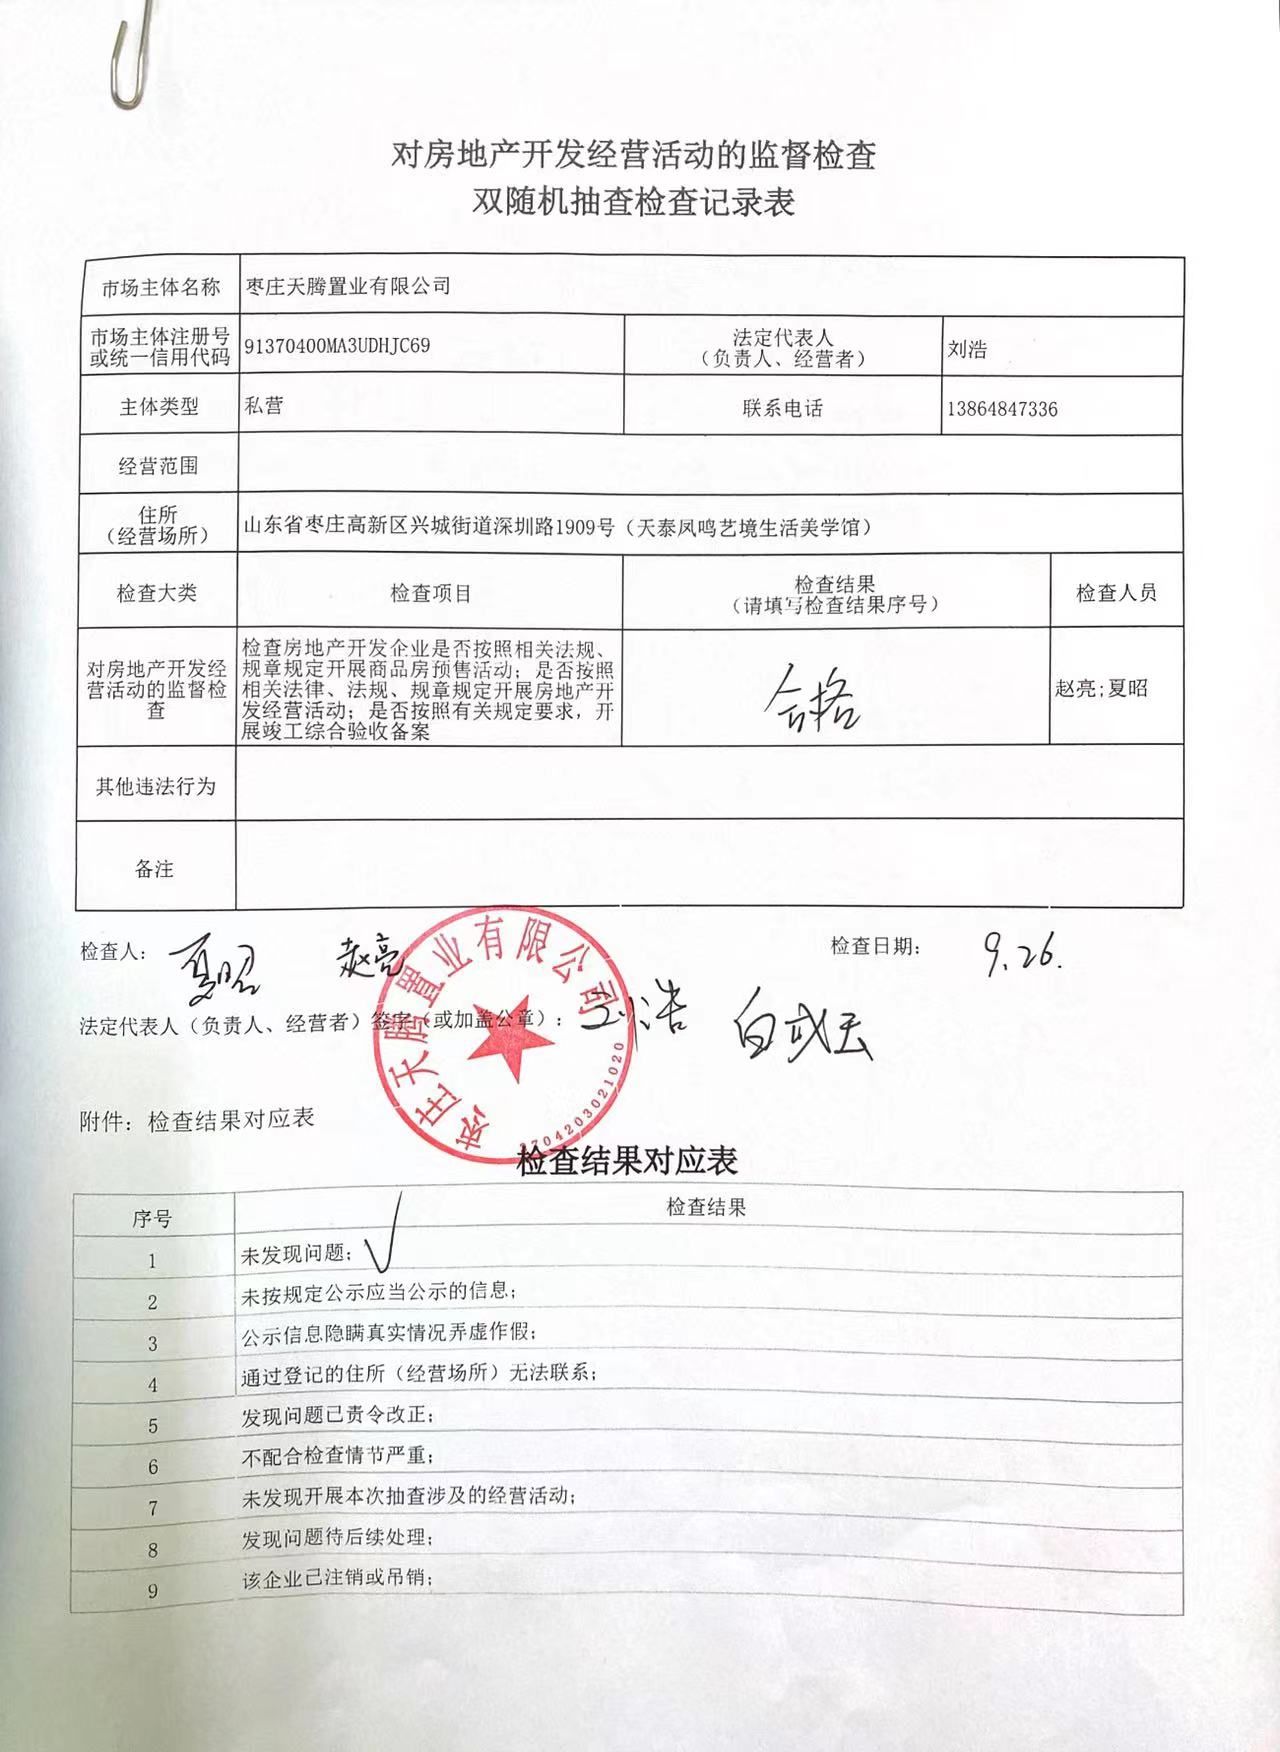 对房地产开发经营活动的监督检查
双随机抽查检查记录表
市场主体名称 枣庄天腾置业有限公司
市场主体注册号
或统一信用代码 91370400MA3UDHJC69 法定代表人
（负责人、经营者） 刘浩
主体类型 私营 联系电话 13864847336
经营范围
住所
（经营场所） 山东省枣庄高新区兴城街道深圳路1909号（天泰凤鸣艺境生活美学馆）
检查大类 检查项目 检查结果
（请填写检查结果序号） 检查人员
对房地产开发经
营活动的监督检
查
检查房地产开发企业是否按照相关法规、
规章规定开展商品房预售活动；是否按照
相关法律、法规、规章规定开展房地产开
发经营活动；是否按照有关规定要求，开
展竣工综合验收备案
合格
赵亮;夏昭
其他违法行为
备注
检查人： 夏昭 赵亮 检查日期： 9.26.
法定代表人（负责人、经营者）签字（或加盖公章）： 刘浩
枣庄天腾置业有限公司
3704203021020
附件：检查结果对应表
检查结果对应表
序号 检查结果
1 未发现问题； √
2 未按规定公示应当公示的信息；
3 公示信息隐瞒真实情况弄虚作假；
4 通过登记的住所（经营场所）无法联系；
5 发现问题已责令改正；
6 不配合检查情节严重；
7 未发现开展本次抽查涉及的经营活动；
8 发现问题待后续处理；
9 该企业已注销或吊销；